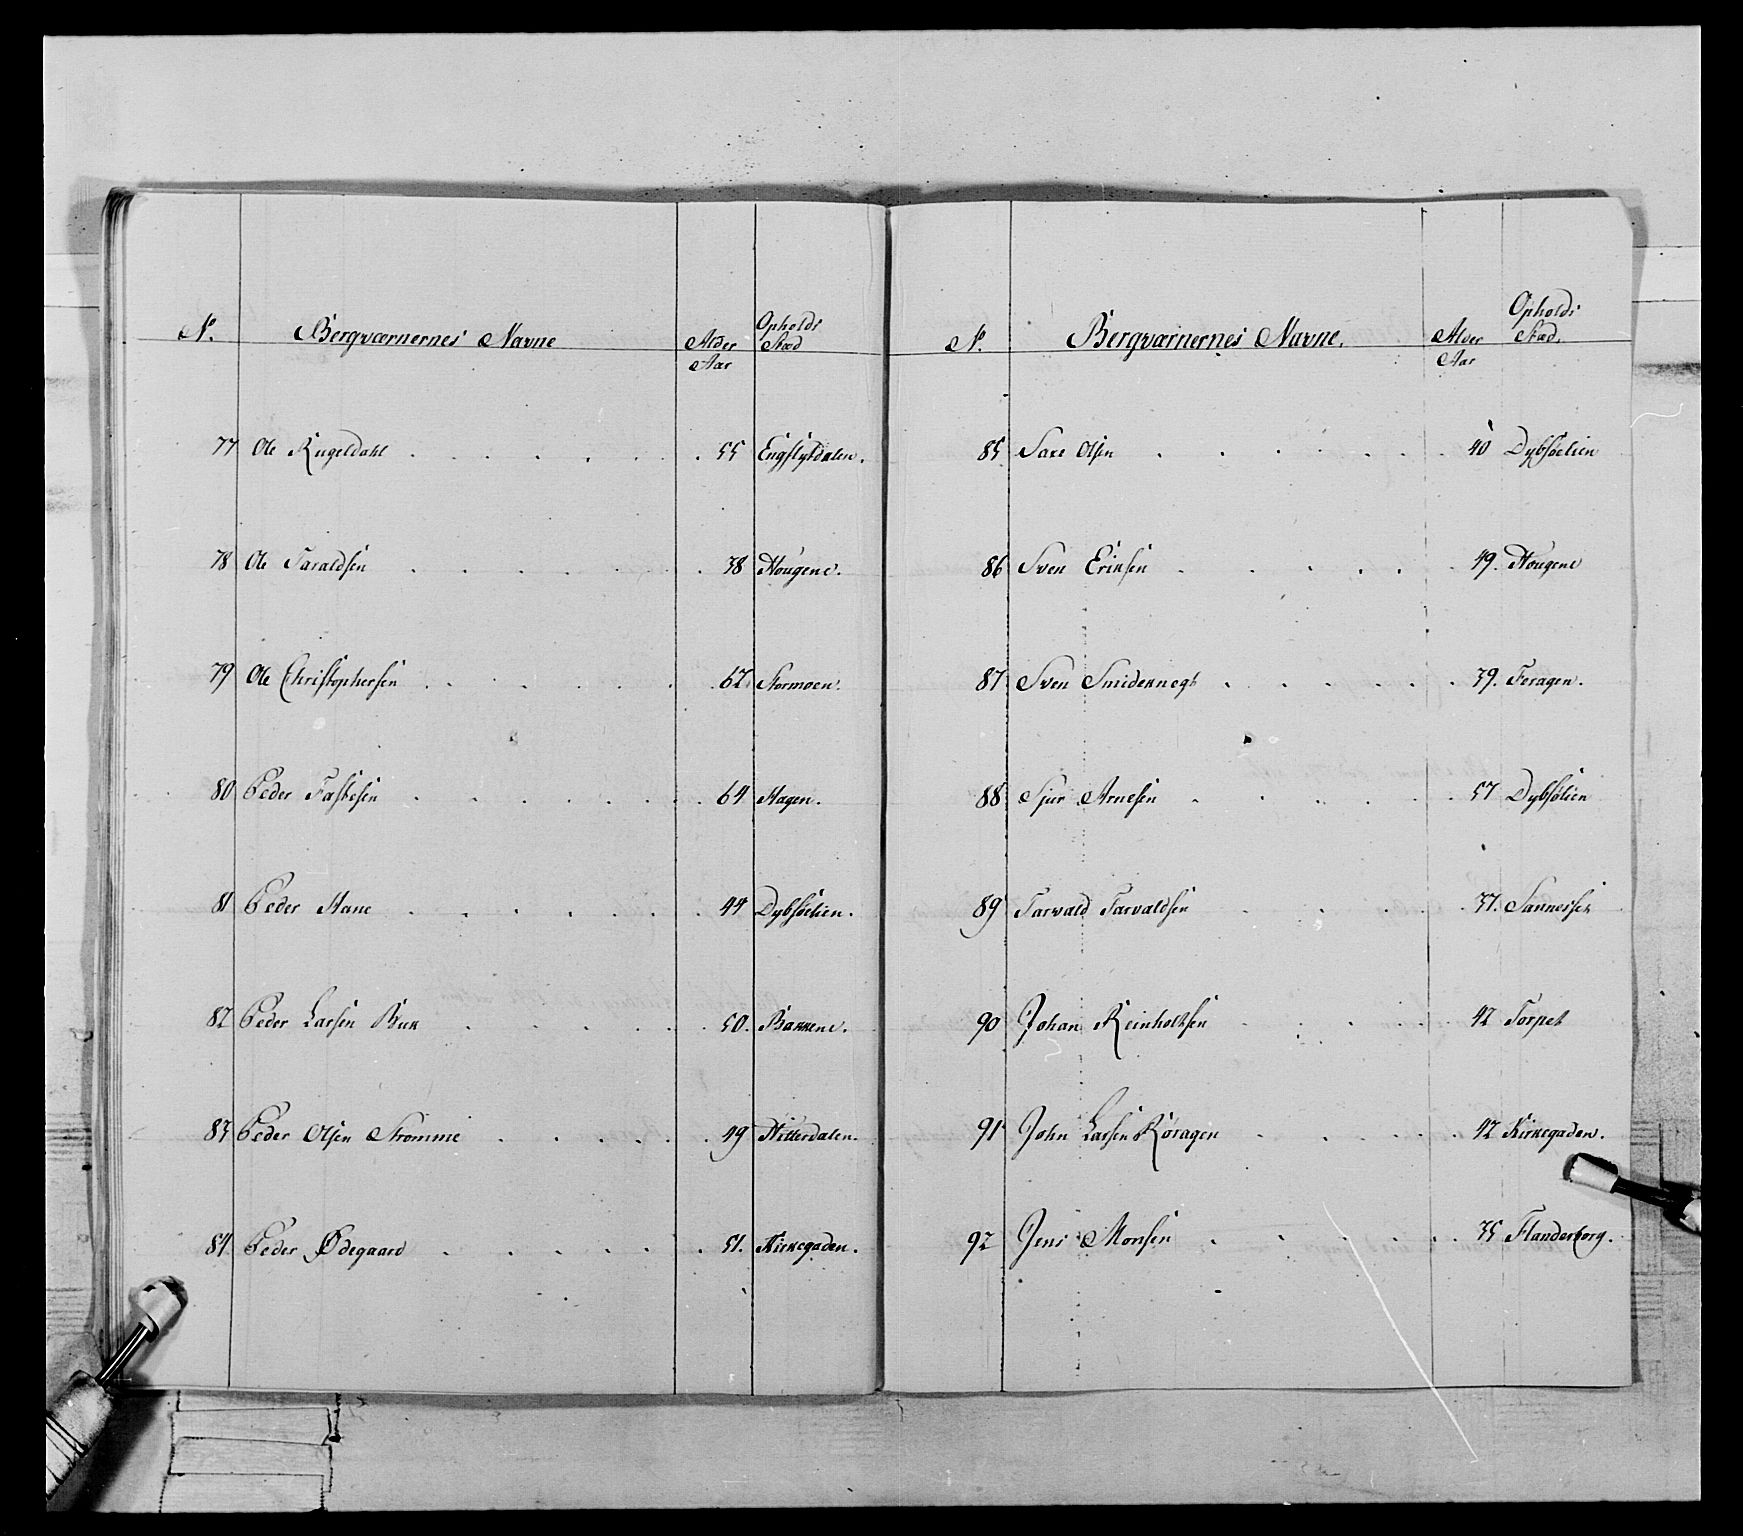 No. Bergværnernes Navne Alder Aar Opholds Stæd
77 Ole Kugeldahl 55 Engslytdalen.
78 Ole Taraldsen 38 Hougene.
79 Ole Christophersen 62. Stormoen.
80 Peder Fastesen 64 Hagen.
81 Peder Hane 44 Dybsöelien.
82 Peder Larsen Buk 50. Bakkene.
83 Peder Olsen Strömme 49 Hitterdalen.
84 Peder Ødegaard 51. Kirkegaden.
No. Bergværnernes Navne. Alder Aar Opholds Stæd.
85 Saxe Olsen 40 Dybsöelien
86 Sven Eriksen 49. Hougene
87 Sven Smideknegt 39. Feragen.
88 Sjur Arnesen 57 Dybsölien
89 Tarvald Tarvaldsen 37. Sannesset
90 Johan Reinholtsen 42 Torpet
91 John Larsen Röragen 42 Kirkegaden.
92 Jens Monsen 35 Flanderborg.